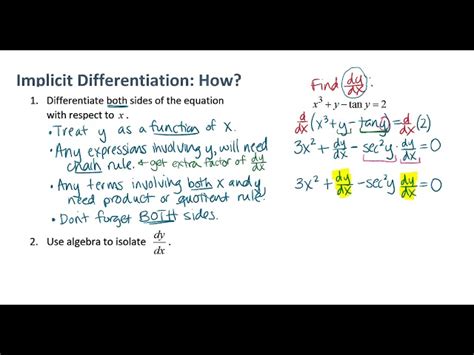 Implicit Differentiation: How?
1. Differentiate both sides of the equation
with respect to x.
• Treat y as a function of x.
• Any expressions involving y, will need
chain rule. ← get extra factor of dy/dx
• Any terms involving both x and y,
need product or quotient rule.
• Don't forget BOTH sides.
2. Use algebra to isolate dy/dx.
Find dy/dx:
x³ + y − tan y = 2
d/dx(x³ + y − tan y) = d/dx(2)
3x² + dy/dx − sec²y · dy/dx = 0
3x² + dy/dx − sec²y dy/dx = 0